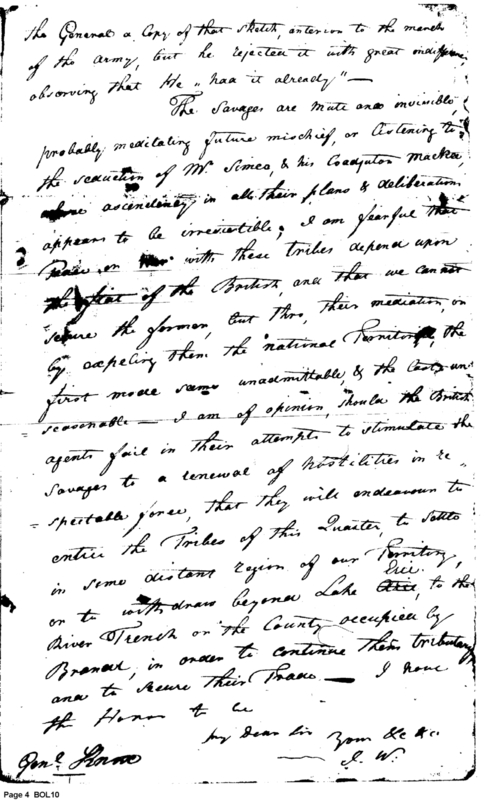 the General a Copy of that Sketch, anterior to the march
of the army, but he rejected it with great indifference
observing that He "had it already" —
The Savages are mute and invisible,
probably meditating future mischief, or listening to
the seduction of Mr. Simco, & his Coadjutor McKee,
ascendency in all their plans & deliberations
appears to be irresistible; I am fearful that
Peace or War with these tribes depend upon
the fiat of the British and that we cannot
secure the former, but thro, their mediation, or
by expeling them the national Territory, the
first mode seems unadmittable, & the last un
seasonable — I am of opinion, should the British
agents fail in their attempts to stimulate the
Savages to a renewal of Hostilities in re
=spectable force, that they will endeavour to
entice the Tribes of this Quarter, to settle
in some distant region of our Territory,
or to withdraw beyond Lake Erie, to the
River Trench or the County occupied by
Brandt, in order to continue them tributary
and to secure their Trade — I have
the Honor to be
my dear Sir Your &c &c
J. W.
Genl. Knox
Page 4 BOL10